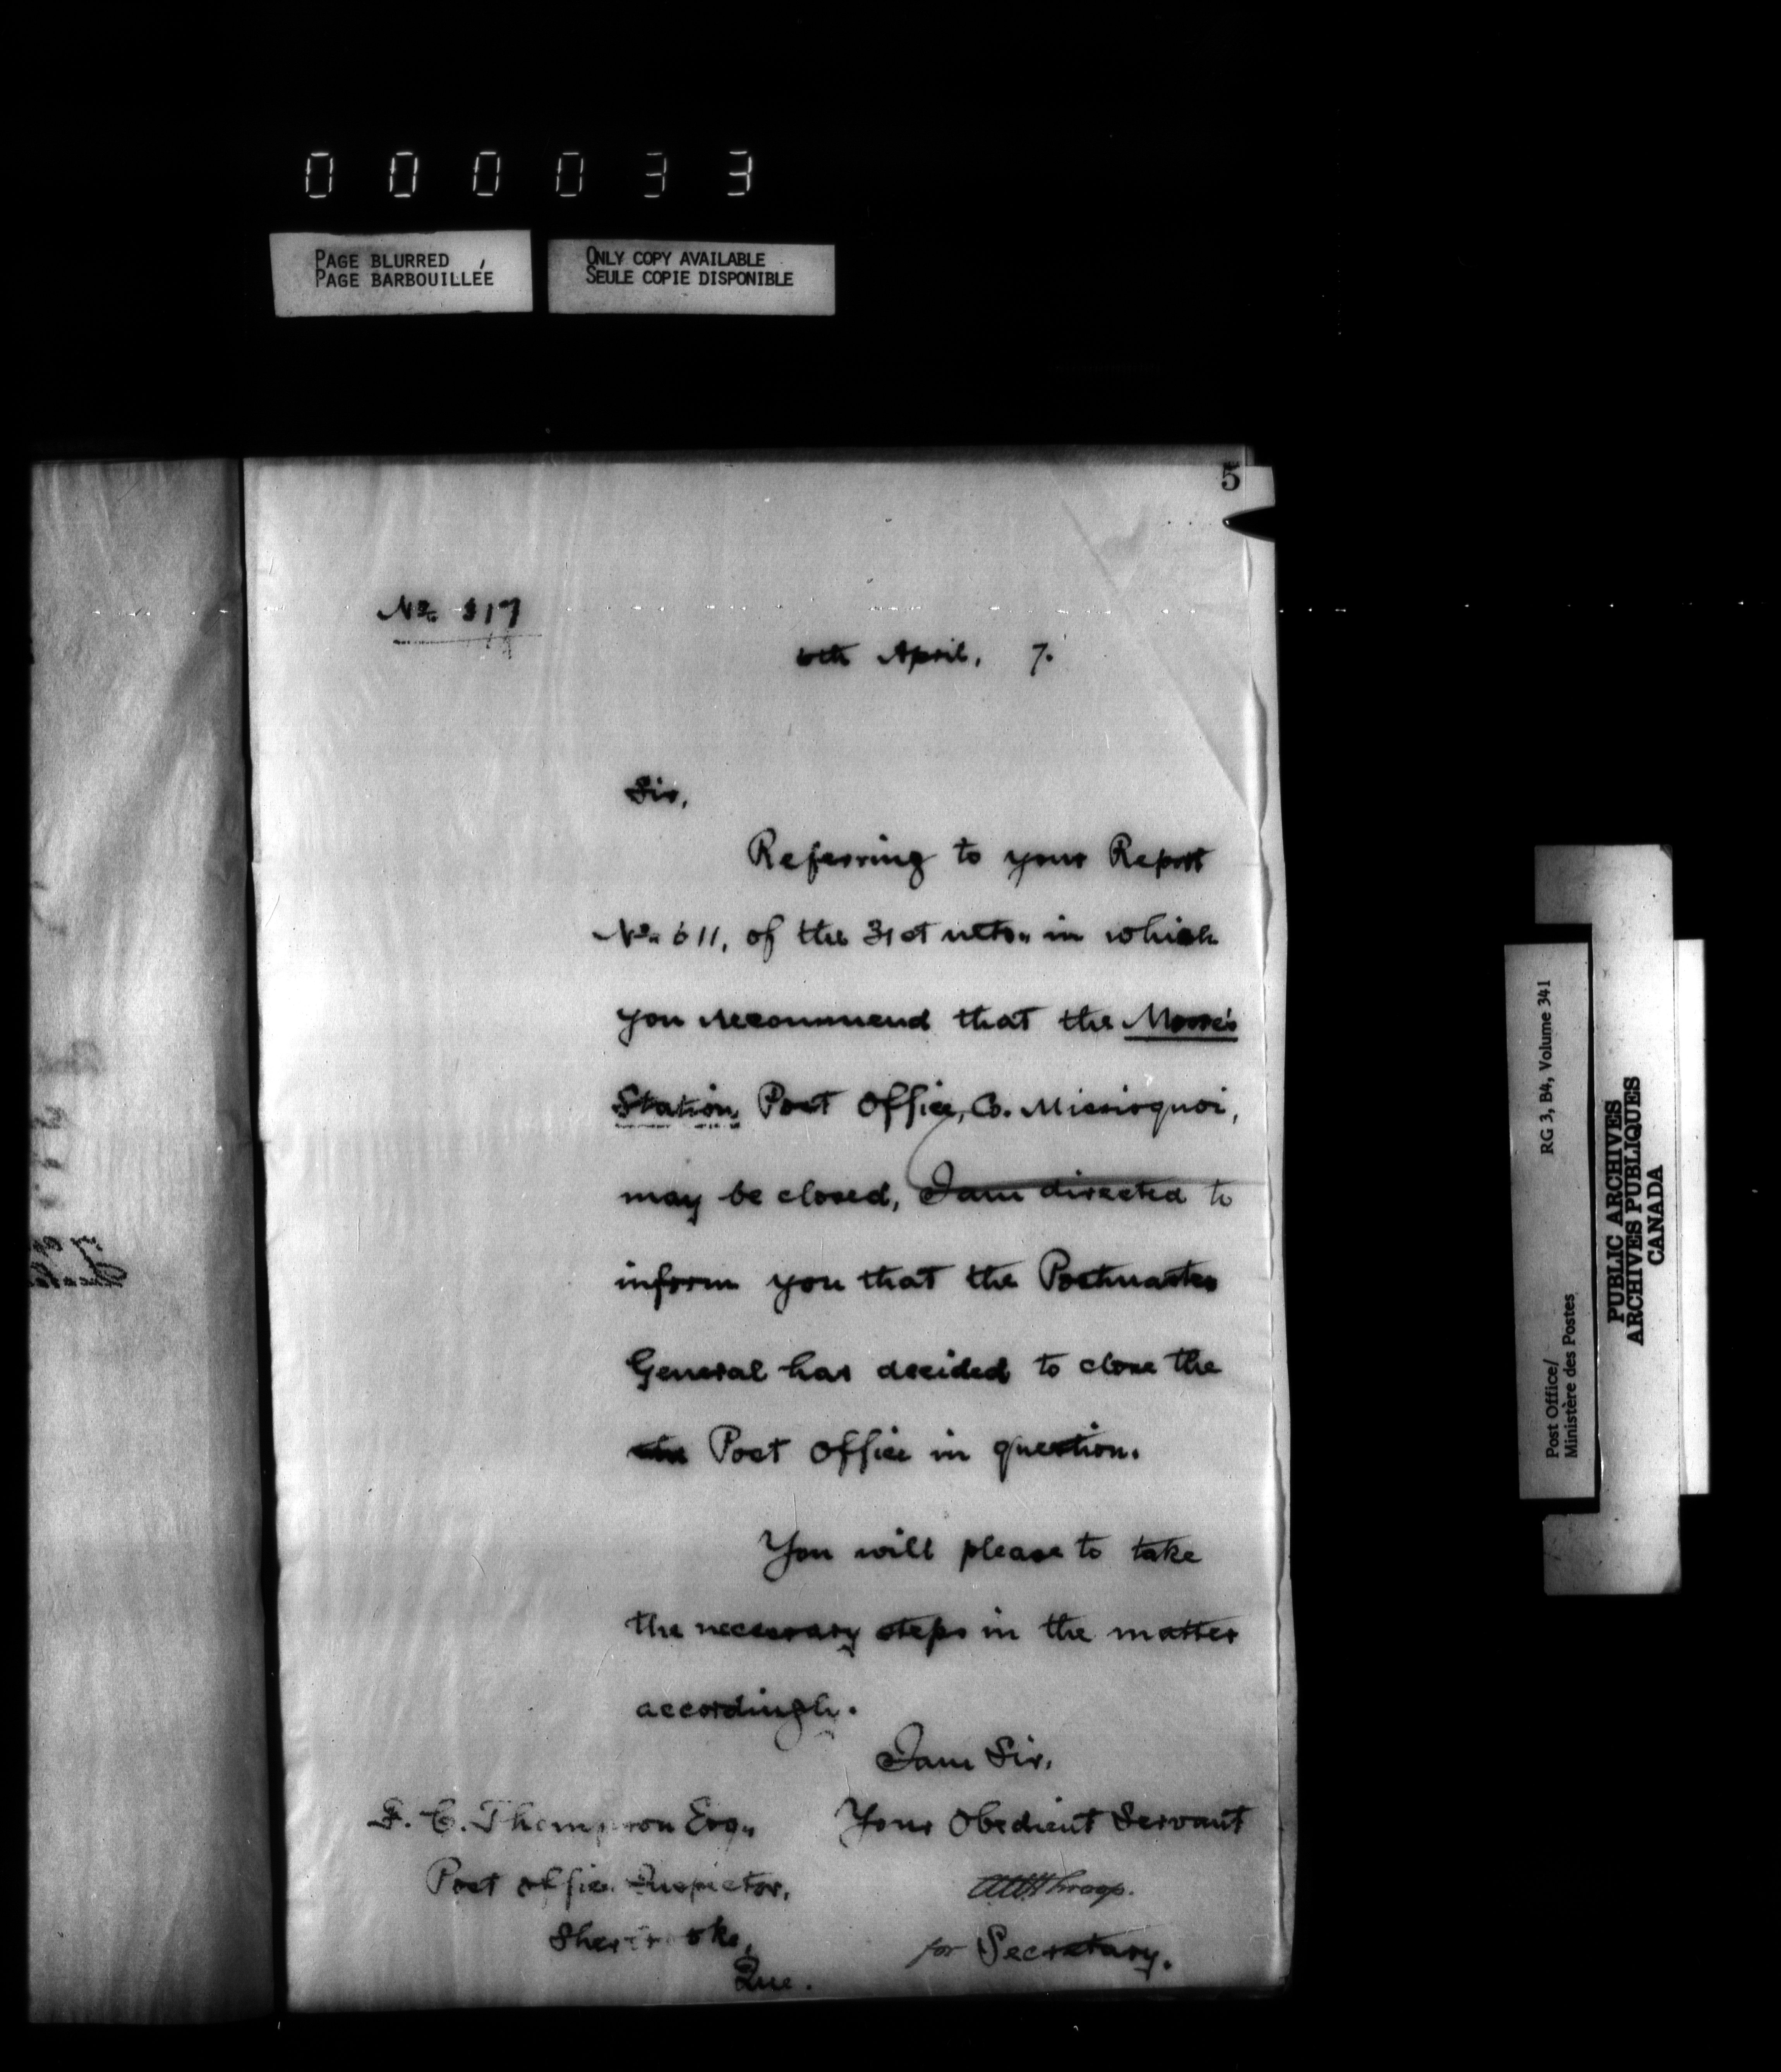 000033
PAGE BLURRED
PAGE BARBOUILLÉE
ONLY COPY AVAILABLE
SEULE COPIE DISPONIBLE
5
No. 317
6th April, 7.
Sir,
Referring to your Report
No. 611, of the 31st ulto. in which
you recommend that the Moore's
Station, Post Office, Co. Missisquoi,
may be closed, I am directed to
inform you that the Postmaster
General has decided to close the
the Post Office in question.
You will please to take
the necessary steps in the matter
accordingly.
I am Sir,
Your Obedient Servant
for Secretary.
F. C. Thompson Esq.,
Post Office Inspector,
Sherbrooke,
Que.
RG 3, B4, Volume 341
Post Office/
Ministère des Postes
PUBLIC ARCHIVES
ARCHIVES PUBLIQUES
CANADA